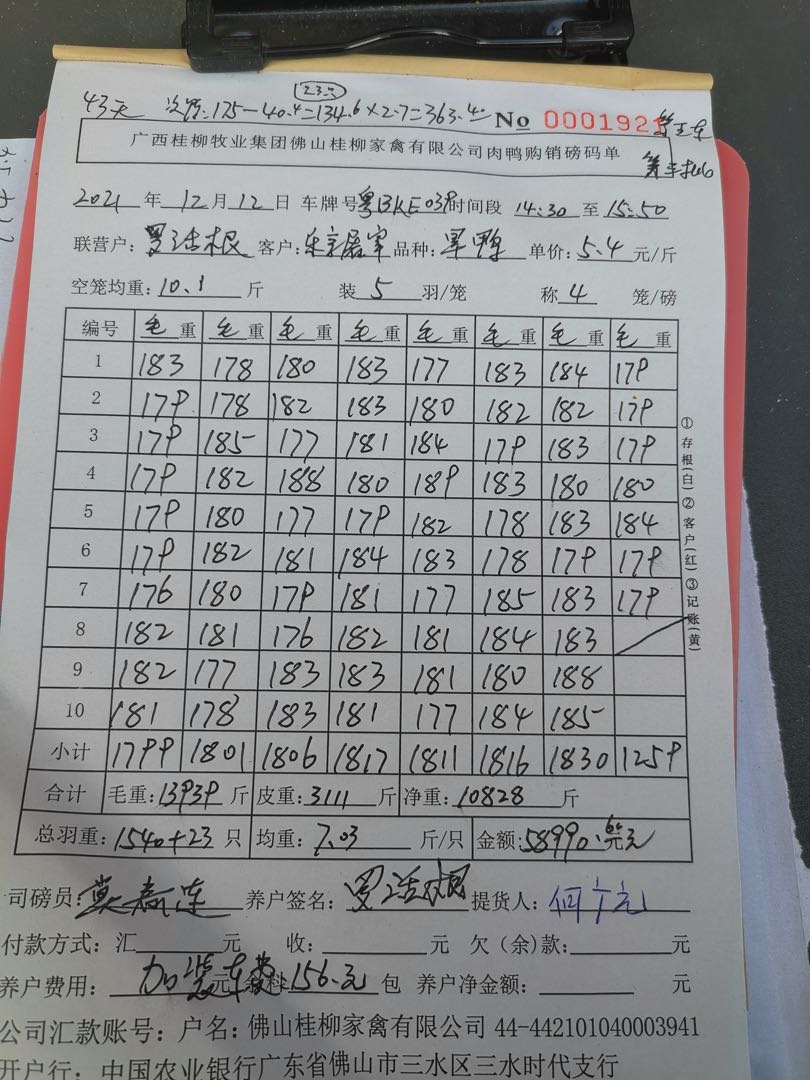 23只
43天 次鸭:175-40.4=134.6×2.7=363.40
No 0001921
广西桂柳牧业集团佛山桂柳家禽有限公司肉鸭购销磅码单
2021年12月12日 车牌号粤BKE039时间段 14:30至15:50
联营户: 客户: 品种: 单价:5.4元/斤
空笼均重:10.1斤 装5羽/笼 称4笼/磅
编号 毛重 毛重 毛重 毛重 毛重 毛重 毛重 毛重
1 183 178 180 183 177 183 184 179
2 179 178 182 183 180 182 182 179
3 179 185 177 181 184 179 183 179
4 179 182 188 180 189 183 180 180
5 179 180 177 179 182 178 183 184
6 179 182 181 184 183 178 179 179
7 176 180 179 181 177 185 183 179
8 182 181 176 182 181 184 183
9 182 177 183 183 181 180 188
10 181 178 183 181 177 184 185
小计 1799 1801 1806 1817 1811 1816 1830 1259
合计 毛重:13939斤 皮重:3111斤 净重:10828斤
总羽重:1540+23只 均重:7.03斤/只 金额:58990.
司磅员: 养户签名: 提货人:
付款方式:汇 元 收: 元 欠(余)款: 元
养户费用:加装车费 元 156.元 包 养户净金额: 元
公司汇款账号:户名:佛山桂柳家禽有限公司 44-442101040003941
开户行:中国农业银行广东省佛山市三水区三水时代支行
①存根(白)②客户(红)③记账(黄)